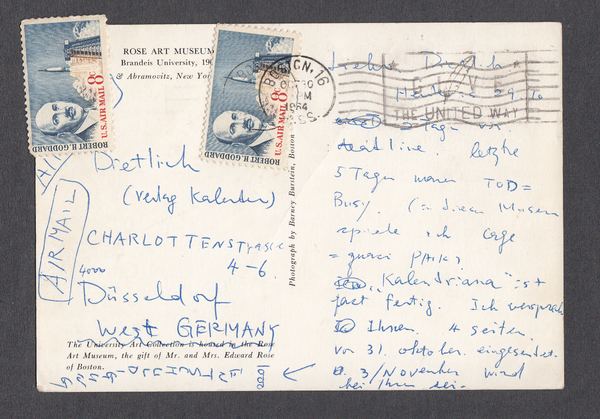 ROSE ART MUSEUM
Brandeis University, 196
& Abramovitz, New York
U.S. AIR MAIL 8c
ROBERT H. GODDARD
U.S. AIR MAIL 8c
ROBERT H. GODDARD
BOSTON, 16
1964
MASS
GIVE
THE UNITED WAY
AIR MAIL
Dietlich
(Verlag Kalender)
CHARLOTTENstrasse
4-6.
4000
Düsseldorf
West GERMANY
Photograph by Barney Burstein, Boston
The University Art Collection is housed in the Rose
Art Museum, the gift of Mr. and Mrs. Edward Rose
of Boston.
Heute 29
5 Tage vor
deadline. letzte
5 Tagen waren TOD=
Busy. (In diesem Museum
spiele ich Cage
"Kalendriana" ist
fast fertig. Ich versprach
Ihnen. 4 seiten
vor 31. oktober. eingesendet.
2. 3/November wird
bei Ihnen sein.